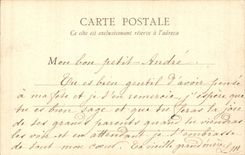 CARTE POSTALE
Ce côté est exclusivement réservé à l'adresse
Mon bon petit André,
Tu es bien gentil d'avoir pensé
à ma fête et je t'en remercie, j'espère que
tu es bien sage et que tu feras la joie
de tes grands parents quand tu viendras
les voir et en attendant je t'embrasse
de tout mon cœur. Ta vieille grand'mère